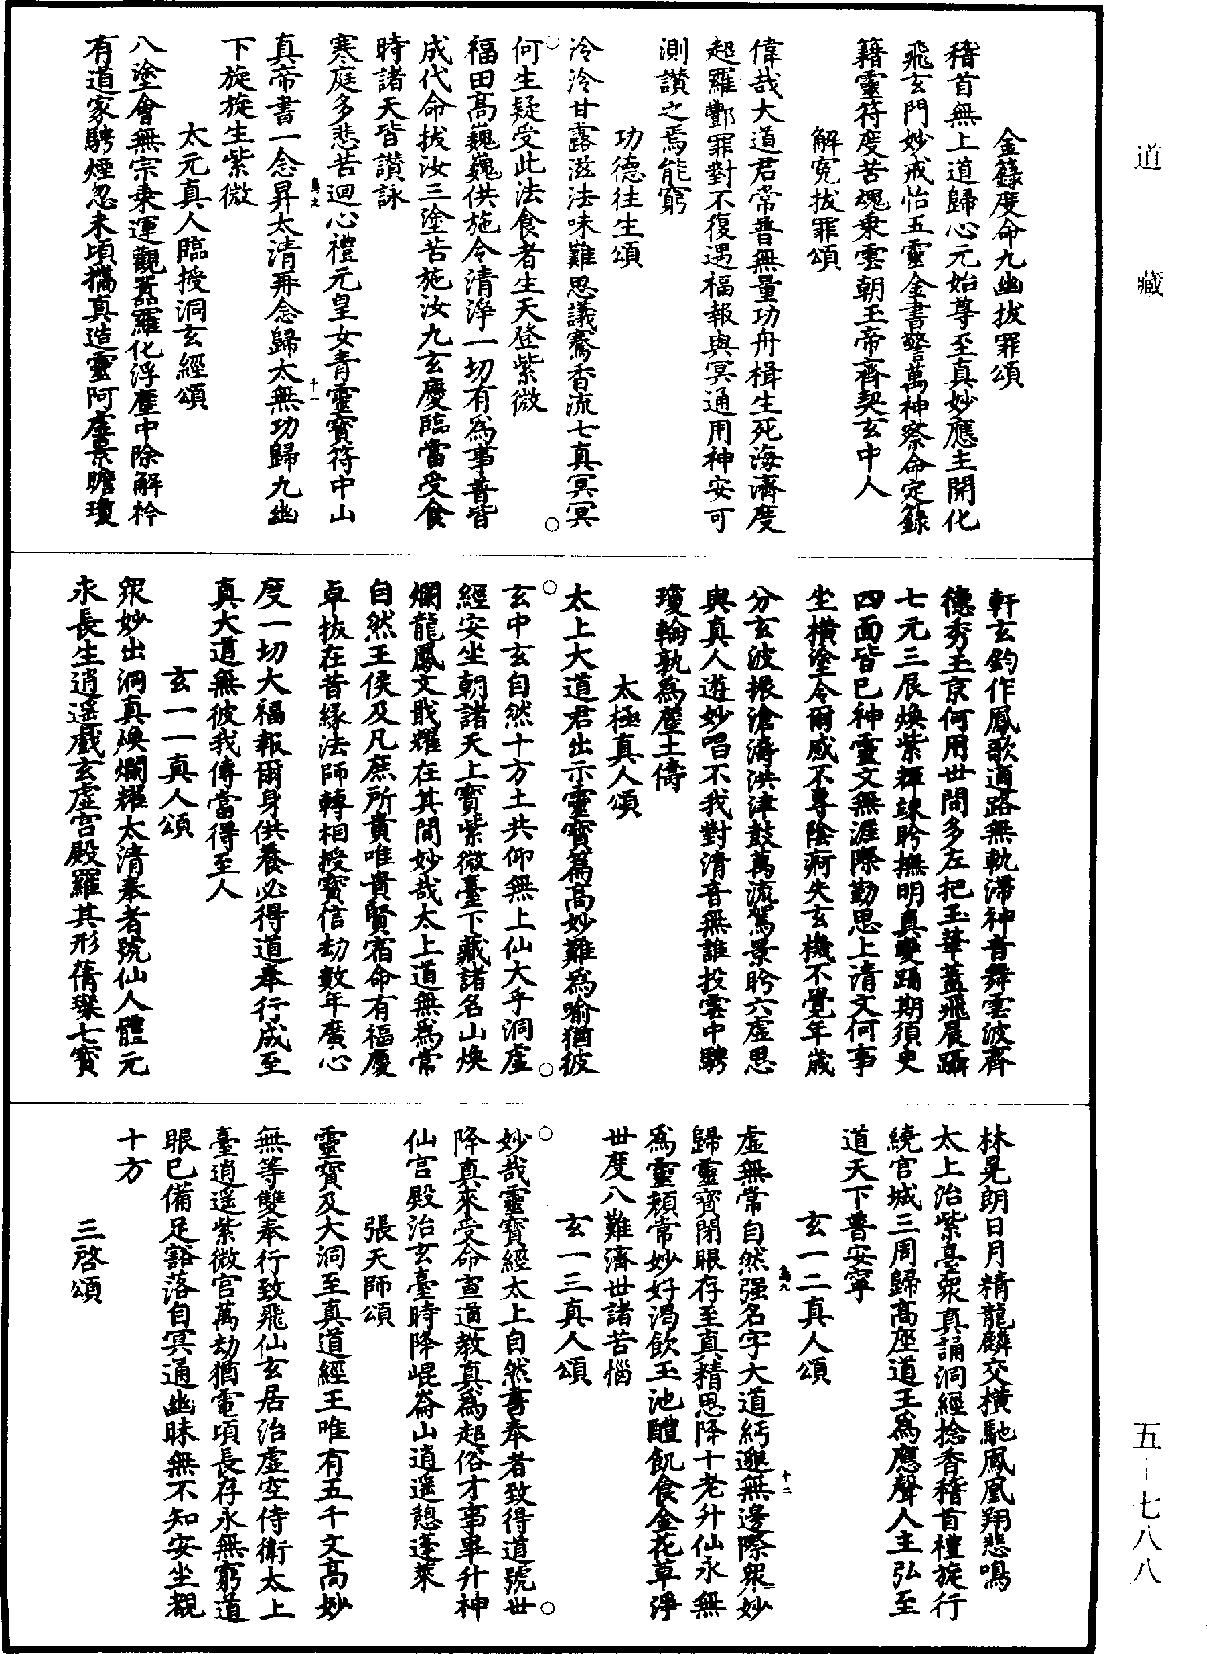 道藏
五-七八八
金籙度命九幽拔罪頌
稽首無上道歸心元始尊至真妙應主開化
飛玄門妙戒怡五靈金書警萬神察命定錄
籍靈符度苦魂乘雲朝玉帝齊契玄中人
解冤拔罪頌
偉哉大道君常普無量功舟楫生死海濟度
超羅酆罪對不復遇福報與冥通用神安可
測讚之焉能窮
功德往生頌
泠泠甘露滋法味難思議騫香流七真冥冥
何生疑受此法食者生天登紫微
福田高巍巍供施令清淨一切有為事普皆
成代命拔汝三塗苦施汝九玄慶臨當受食
時諸天皆讚詠
寒庭多悲苦迴心禮元皇女青靈寶符中山
真帝書一念昇太清再念歸太無功歸九幽
下旋旋生紫微
太元真人臨授洞玄經頌
八塗會無宗乘運觀嚻羅化浮塵中除解衿
有道家騁煙忽未頃攜真造靈阿虛景瞻瓊
軒玄鈞作鳳歌道路無軌滯神音舞雲波齊
德秀玉京何用世間多左把玉華蓋飛晨躡
七元三辰煥紫輝竦眄撫明真變踊期須臾
四面皆已神靈文無涯際勤思上清文何事
坐橫塗令爾感不專陰痾失玄機不覺年歲
分玄波振滄濤洪津鼓萬流駕景眄六虛思
與真人遊妙唱不我對清音無誰投雲中騁
瓊輪孰為塵土儔
太極真人頌
太上大道君出示靈寶篇高妙難為喻猶彼
玄中玄自然十方土共仰無上仙大乎洞虛
經安坐朝諸天上寶紫微臺下藏諸名山煥
爛龍鳳文戢耀在其間妙哉太上道無為常
自然王侯及凡庶所貴唯貴賢宿命有福慶
卓拔在昔緣法師轉相授寶信劫數年廣心
度一切大福報爾身供養必得道奉行成至
真大道無彼我傳當得至人
玄一一真人頌
眾妙出洞真煥爛耀太清奉者號仙人體元
永長生逍遙戲玄虛宮殿羅其形蒨璨七寶
林晃朗日月精龍麟交橫馳鳳凰翔悲鳴
太上治紫臺眾真誦洞經捻香稽首禮旋行
繞宮城三周歸高座道王為應聲人主弘至
道天下普安寧
玄一二真人頌
虛無常自然强名字大道紆邈無邊際眾妙
歸靈寶閉眼存至真精思降十老升仙永無
為靈顏常妙好渴飲玉池醴飢食金花草淨
世度八難濟世諸苦惱
玄一三真人頌
妙哉靈寶經太上自然書奉者致得道號世
降真來受命宣道教真為超俗才事畢升神
仙宮殿治玄臺時降崐崙山逍遥憩蓬萊
張天師頌
靈寶及大洞至真道經王唯有五千文高妙
無等雙奉行致飛仙玄居治虛空侍衛太上
臺逍遥紫微宮萬劫猶電頃長存永無窮道
眼已備足豁落自冥通幽昧無不知安坐覩
十方
三啓頌